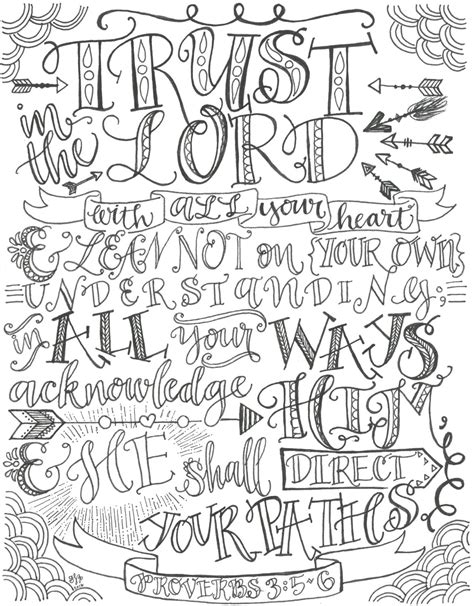 TRUST
in the LORD
with ALL your heart
& LEAN NOT on {YOUR OWN}
UNDERSTANDING;
in ALL your WAYS
acknowledge HIM,
& HE shall DIRECT
YOUR PATHS.
PROVERBS 3:5~6